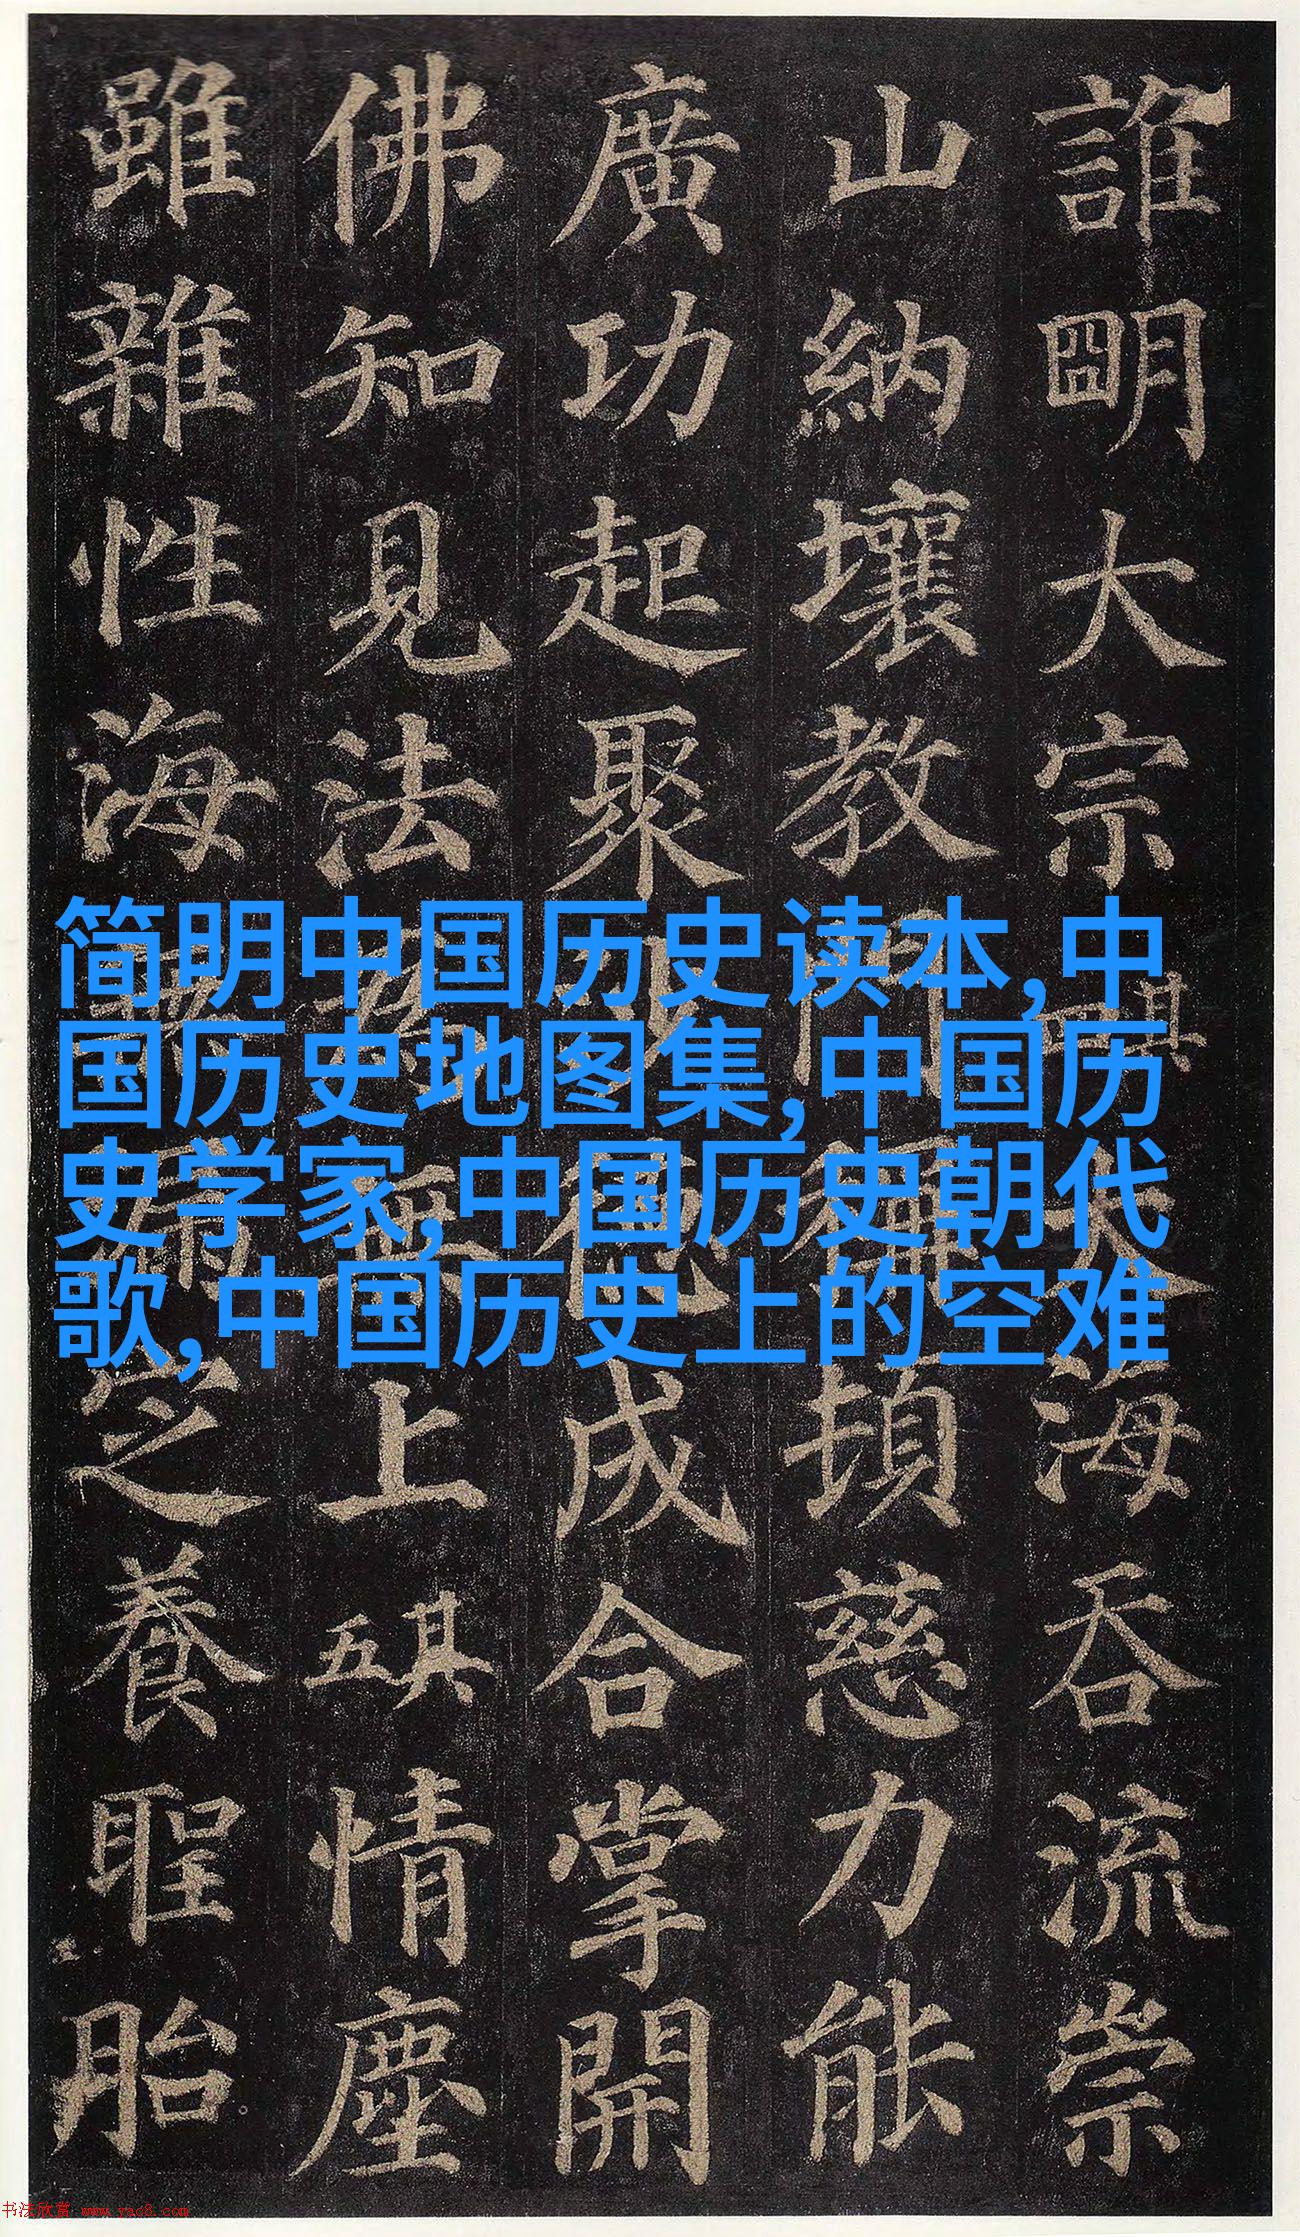 誰朙大宗其四大海吞流崇
山納壤教門稱頓慈力能
廣功起聚沙德成合掌開
佛知見法為無上其五情塵
雖雜性海無漏定養聖胎
简明中国历史读本,中
国历史地图集,中国历
史学家,中国历史朝代
歌,中国历史上的空难
书法欣赏 www.yac8.com